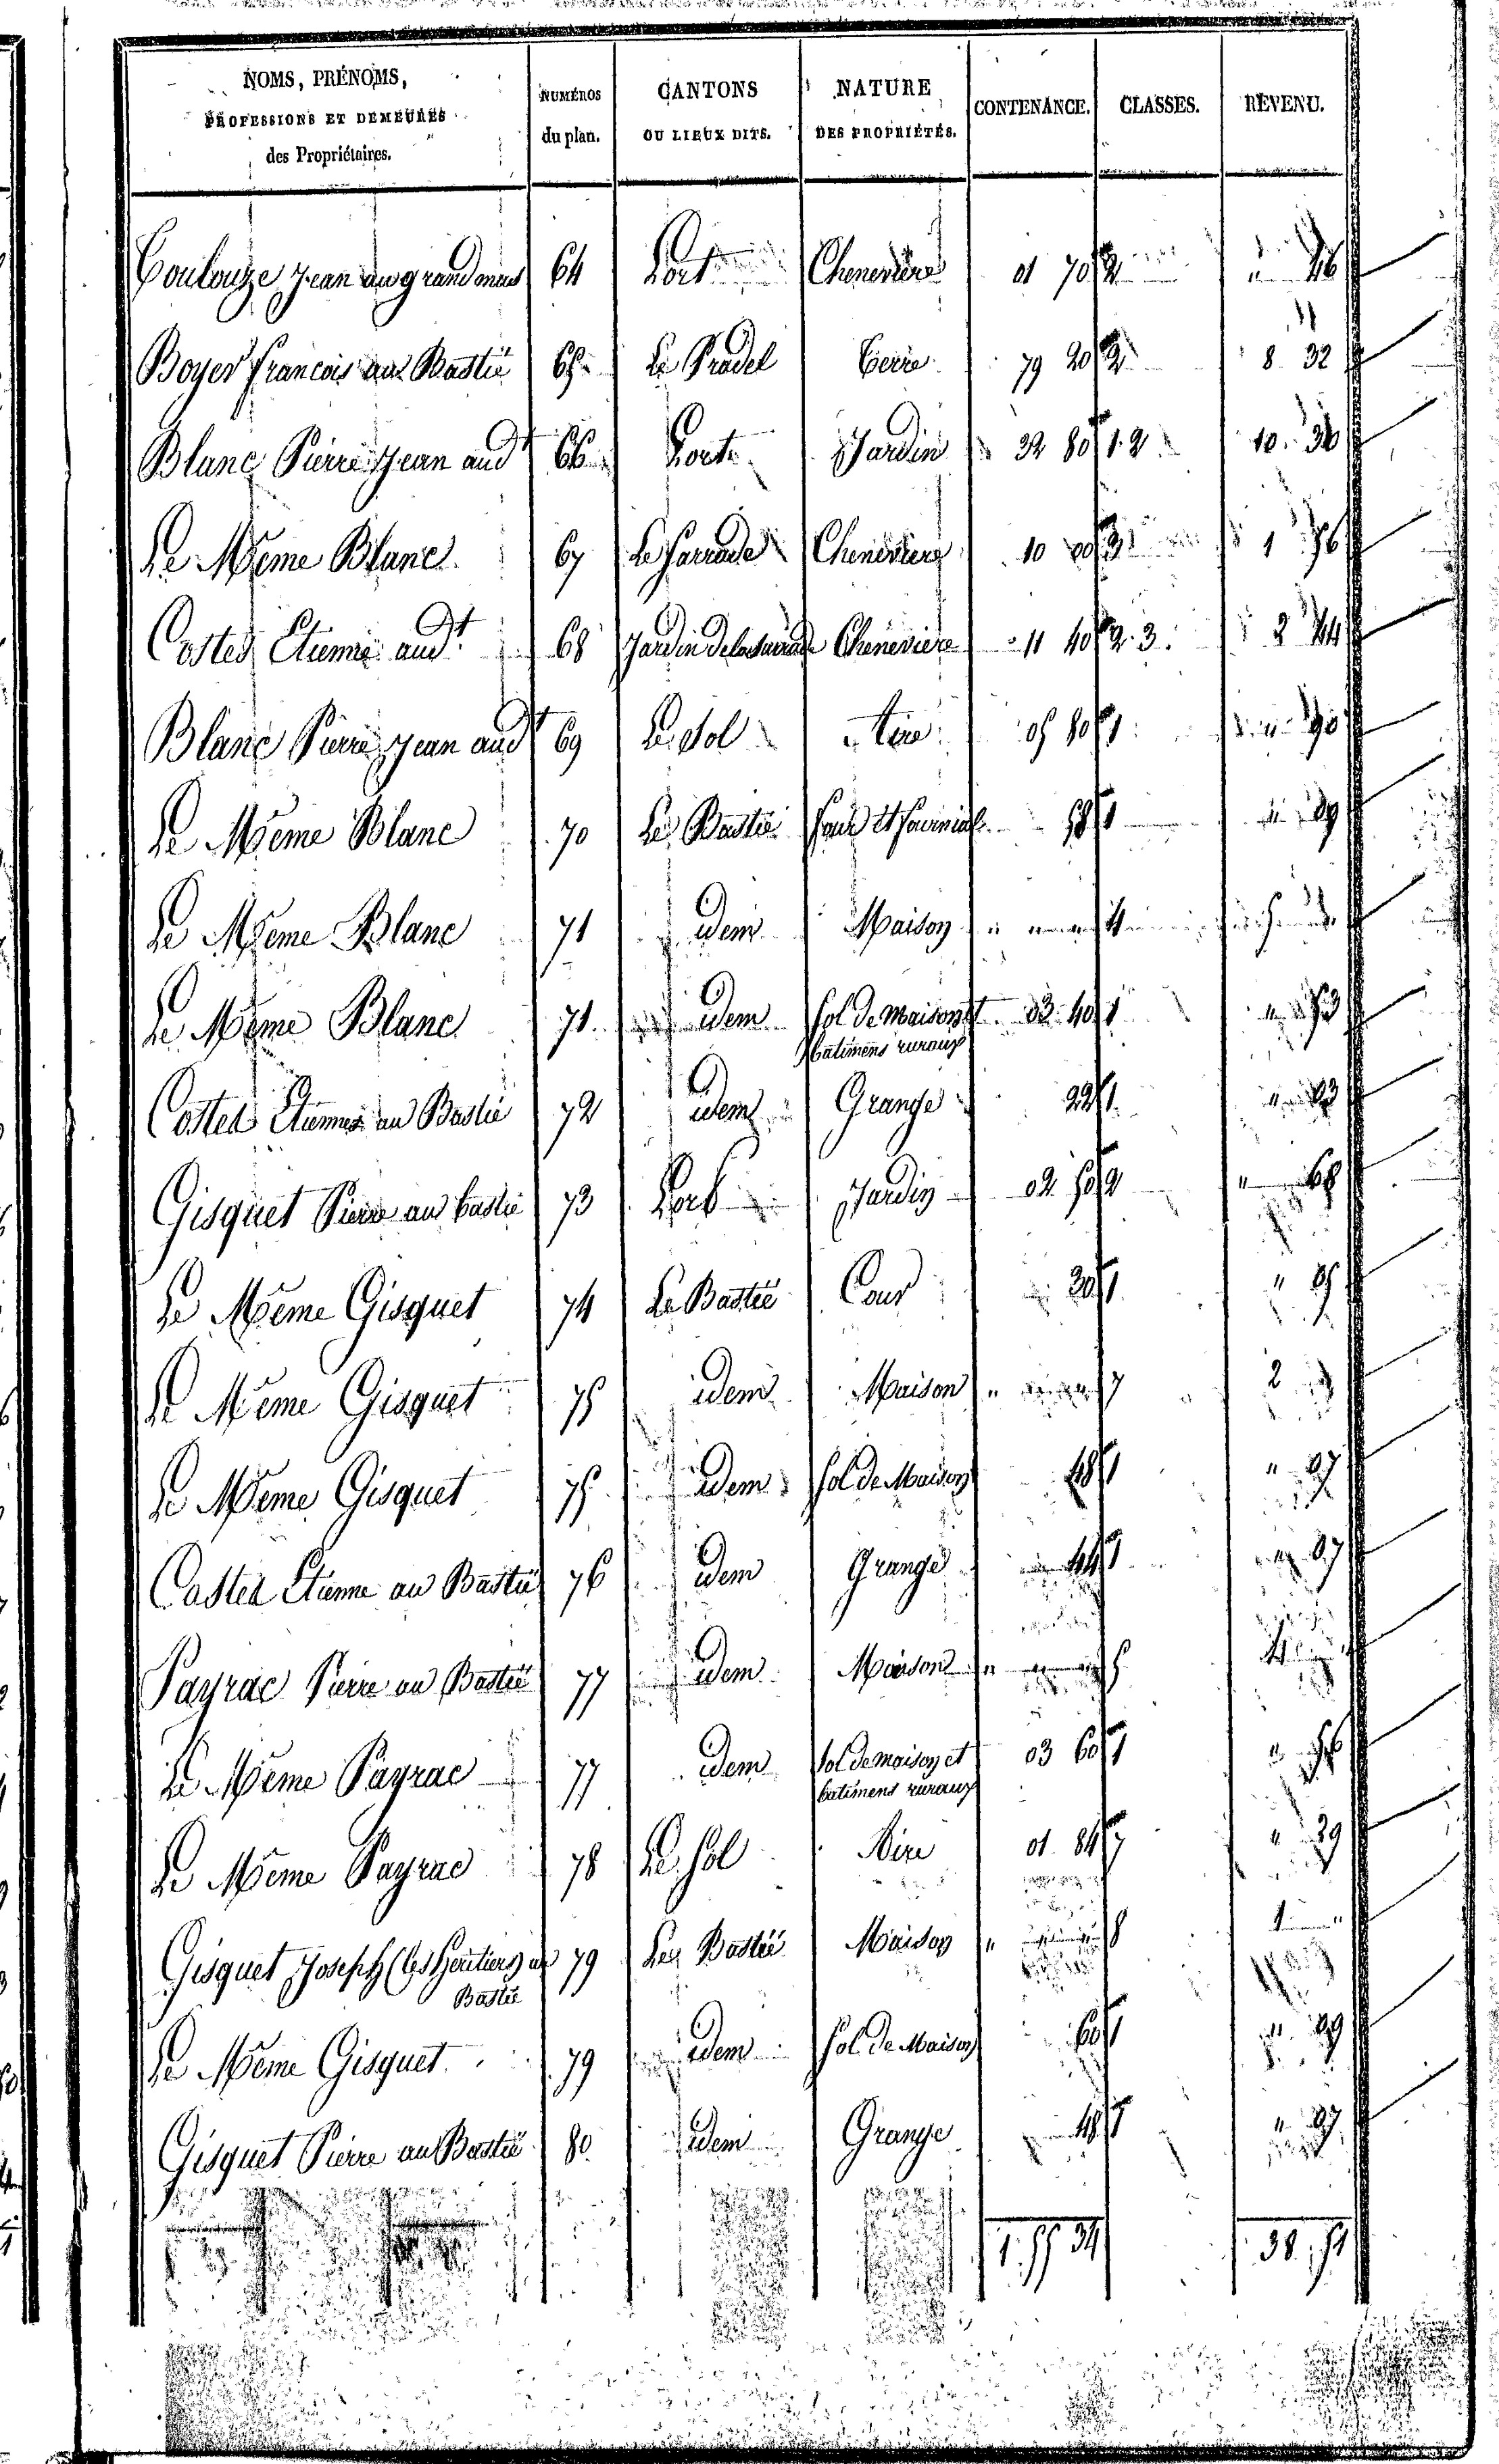 NOMS, PRÉNOMS, PROFESSIONS ET DEMEURES des Propriétaires. NUMÉROS du plan. CANTONS OU LIEUX DITS. NATURE DES PROPRIÉTÉS. CONTENANCE. CLASSES. REVENU.
Coulouze Jean au grand mas 64 Lort Cheneviere 01 70 2 " 46
Boyer francois au Bastié 65 Le Pradel Terre 79 20 2 8 32
Blanc Pierre Jean aud.t 66 Lort Jardin 32 80 1.2 10 36
Le Même Blanc 67 Cheneviere 10 00 3 1 76
Costes Etienne aud.t 68 Jardin de Cheneviere 11 40 2.3. 2 44
Blanc Pierre Jean aud.t 69 Le Sol Aire 05 80 1 " 90
Le Même Blanc 70 Le Bastié four et 58 1 " 09
Le Même Blanc 71 idem Maison " 4
Le Même Blanc 71 idem Sol de maison et 03 40 1 " 53
batimens ruraux
Costes Etienne au Bastié 72 idem Grange 22 1 " 03
Gisquet Pierre au bastié 73 Lort Jardin 02 50 2 " 68
Le Même Gisquet 74 Le Bastié Cour 30 1 " 05
Le Même Gisquet 75 idem Maison " 7 2
Le Même Gisquet 75 idem Sol de Maison 48 1 " 07
Costes Etienne au Bastié 76 idem Grange 44 1 " 07
Payrac Pierre au Bastié 77 idem Maison " 5 4
Le Même Payrac 77 idem Sol de maison et 03 60 1 " 56
batimens ruraux
Le Même Payrac 78 Le Sol Aire 01 84 1 " 29
Gisquet Joseph (les héritiers) au 79 Le Bastié Maison " 8 1 "
Bastié
Le Même Gisquet 79 idem Sol de Maison 60 1 " 09
Gisquet Pierre au Bastié 80 idem Grange 48 1 " 07
1. 55 34 38. 51